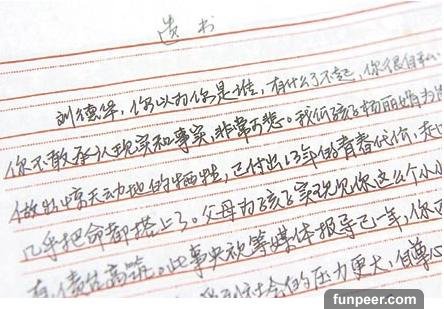 遗书
刘德华，你以为你是谁，有什么了不起，你很自私
你不敢承认现实和事实，非常可悲。我们孩子杨丽娟为
做出惊天动地的牺牲，已付出13年的青春代价，
几乎把命都搭上了。父母为孩子实现见你这么个小小
债台高筑。此事央视等媒体报导已一年，你
社会的压力更大，自尊心
funpeer.com